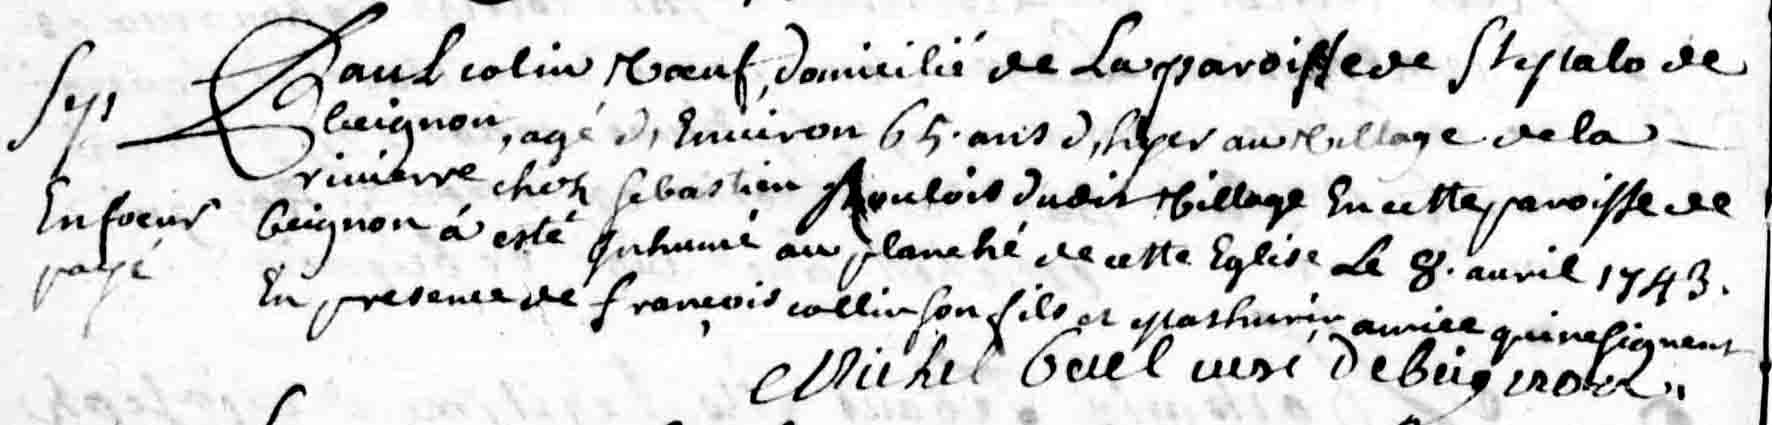 Sep
Enfoeur
payé
Paul colin Voeuf, domicilié de La paroisse de St Malo de
beignon, agé d, Environ 65. ans d, hyer au Village de la
rivierre chez Sebastien Soulois dudit Village En cette paroisse de
beignon á esté Inhumé au planché de cette Eglise Le 8. auril 1743.
En presence de françois collin son fils et Mathurin qui ne signent
Michel curé De beignon.